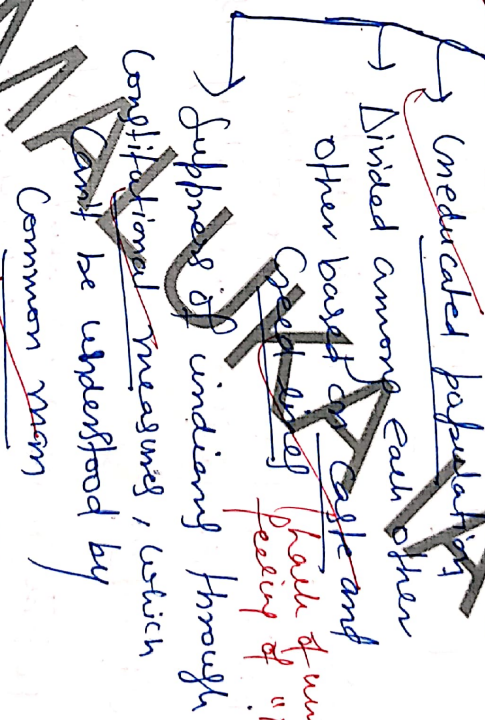 Uneducated population
Divided among each other
other based on caste and
Creed lines
(Lack of
feeling of "
Suppress of indians through
Constitutional measures, which
Can't be understood by
Common man